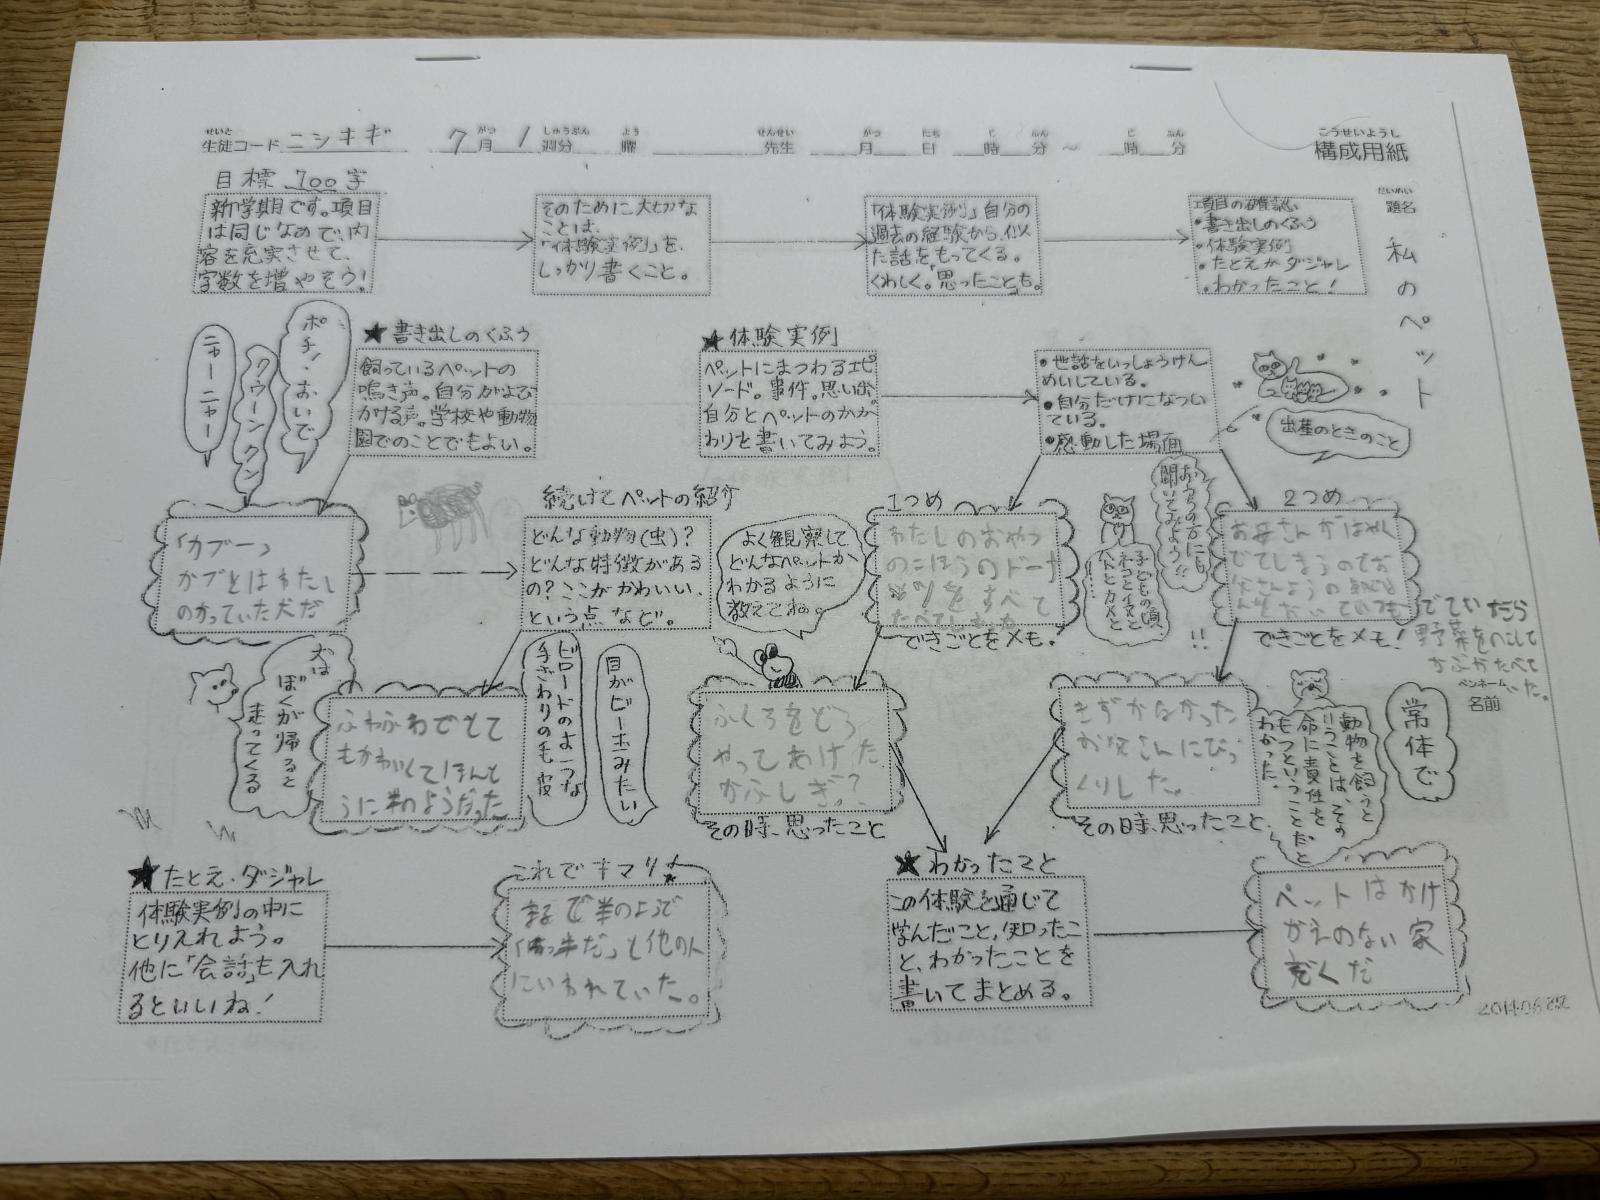 せいと がつ しゅうぶん よう せんせい がつ にち じ ふん じ ふん
生徒コード ニシキギ 7月 1週分 曜 先生 月 日 時 分 〜 時 分
こうせいようし
構成用紙
だいめい
題名
私のペット
目標 700字
新学期です。項目
は同じなので、内
容を充実させて、
字数を増やそう!
そのために大切な
ことは、
「体験実例」を、
しっかり書くこと。
「体験実例」自分の
過去の経験から、似
た話をもってくる。
くわしく。「思ったこと」も。
項目の確認
・書き出しのくふう
・体験実例
・たとえかダジャレ
・わかったこと!
ポチ、おいで
クウーンクン
ニャーニャー
★書き出しのくふう
飼っているペットの
鳴き声。自分がよび
かける声。学校や動物
園でのことでもよい。
★体験実例
ペットにまつわるエピ
ソード。事件。思い出。
自分とペットのかか
わりを書いてみよう。
・世話をいっしょうけん
めいしている。
・自分だけになつい
ている。
・感動した場面
出産のときのこと
「カブーっ
カブとはわたし
のかっていた犬だ
続けてペットの紹介
どんな動物(虫)?
どんな特徴がある
の?ここがかわいい、
という点など。
よく観察して
どんなペットか
わかるように
教えてね。
1つめ
わたしのおやつ
のごほうのドーナ
をすべて
たべてしまった
できごとをメモ!
子どもの頃
ネコとイヌと
ハトとカメと
おうちの方にも
聞いてみよう!!
!!
2つめ
お母さんがはやく
でてしまうのでお
父さんようの
できごとをメモ!
でていたら
野菜をのこして
かぶがたべて
いた。
ペンネーム
名前
犬は
ぼくが帰ると
走ってくる
ふわふわでとて
もかわいくてほんと
うに羊のようだった
ビロードのような
手ざわりの毛皮
目がビー玉みたい
ふくろをどう
やってあけた
かふしぎ?
その時、思ったこと
きずかなかった
お父さんにびっ
くりした。
その時、思ったこと
動物を飼うと
いうことは、その
命に責任を
もつということだと
わかった。
常体で
★たとえ・ダジャレ
体験実例の中に
とりいれよう。
他に「会話」も入れ
るといいね!
これでキマリ!
まるで羊のようで
と他の人
にいわれていた。
★わかったこと
この体験を通じて
学んだこと、知ったこ
と、わかったことを
書いてまとめる。
ペットはかけ
がえのない家
ぞくだ